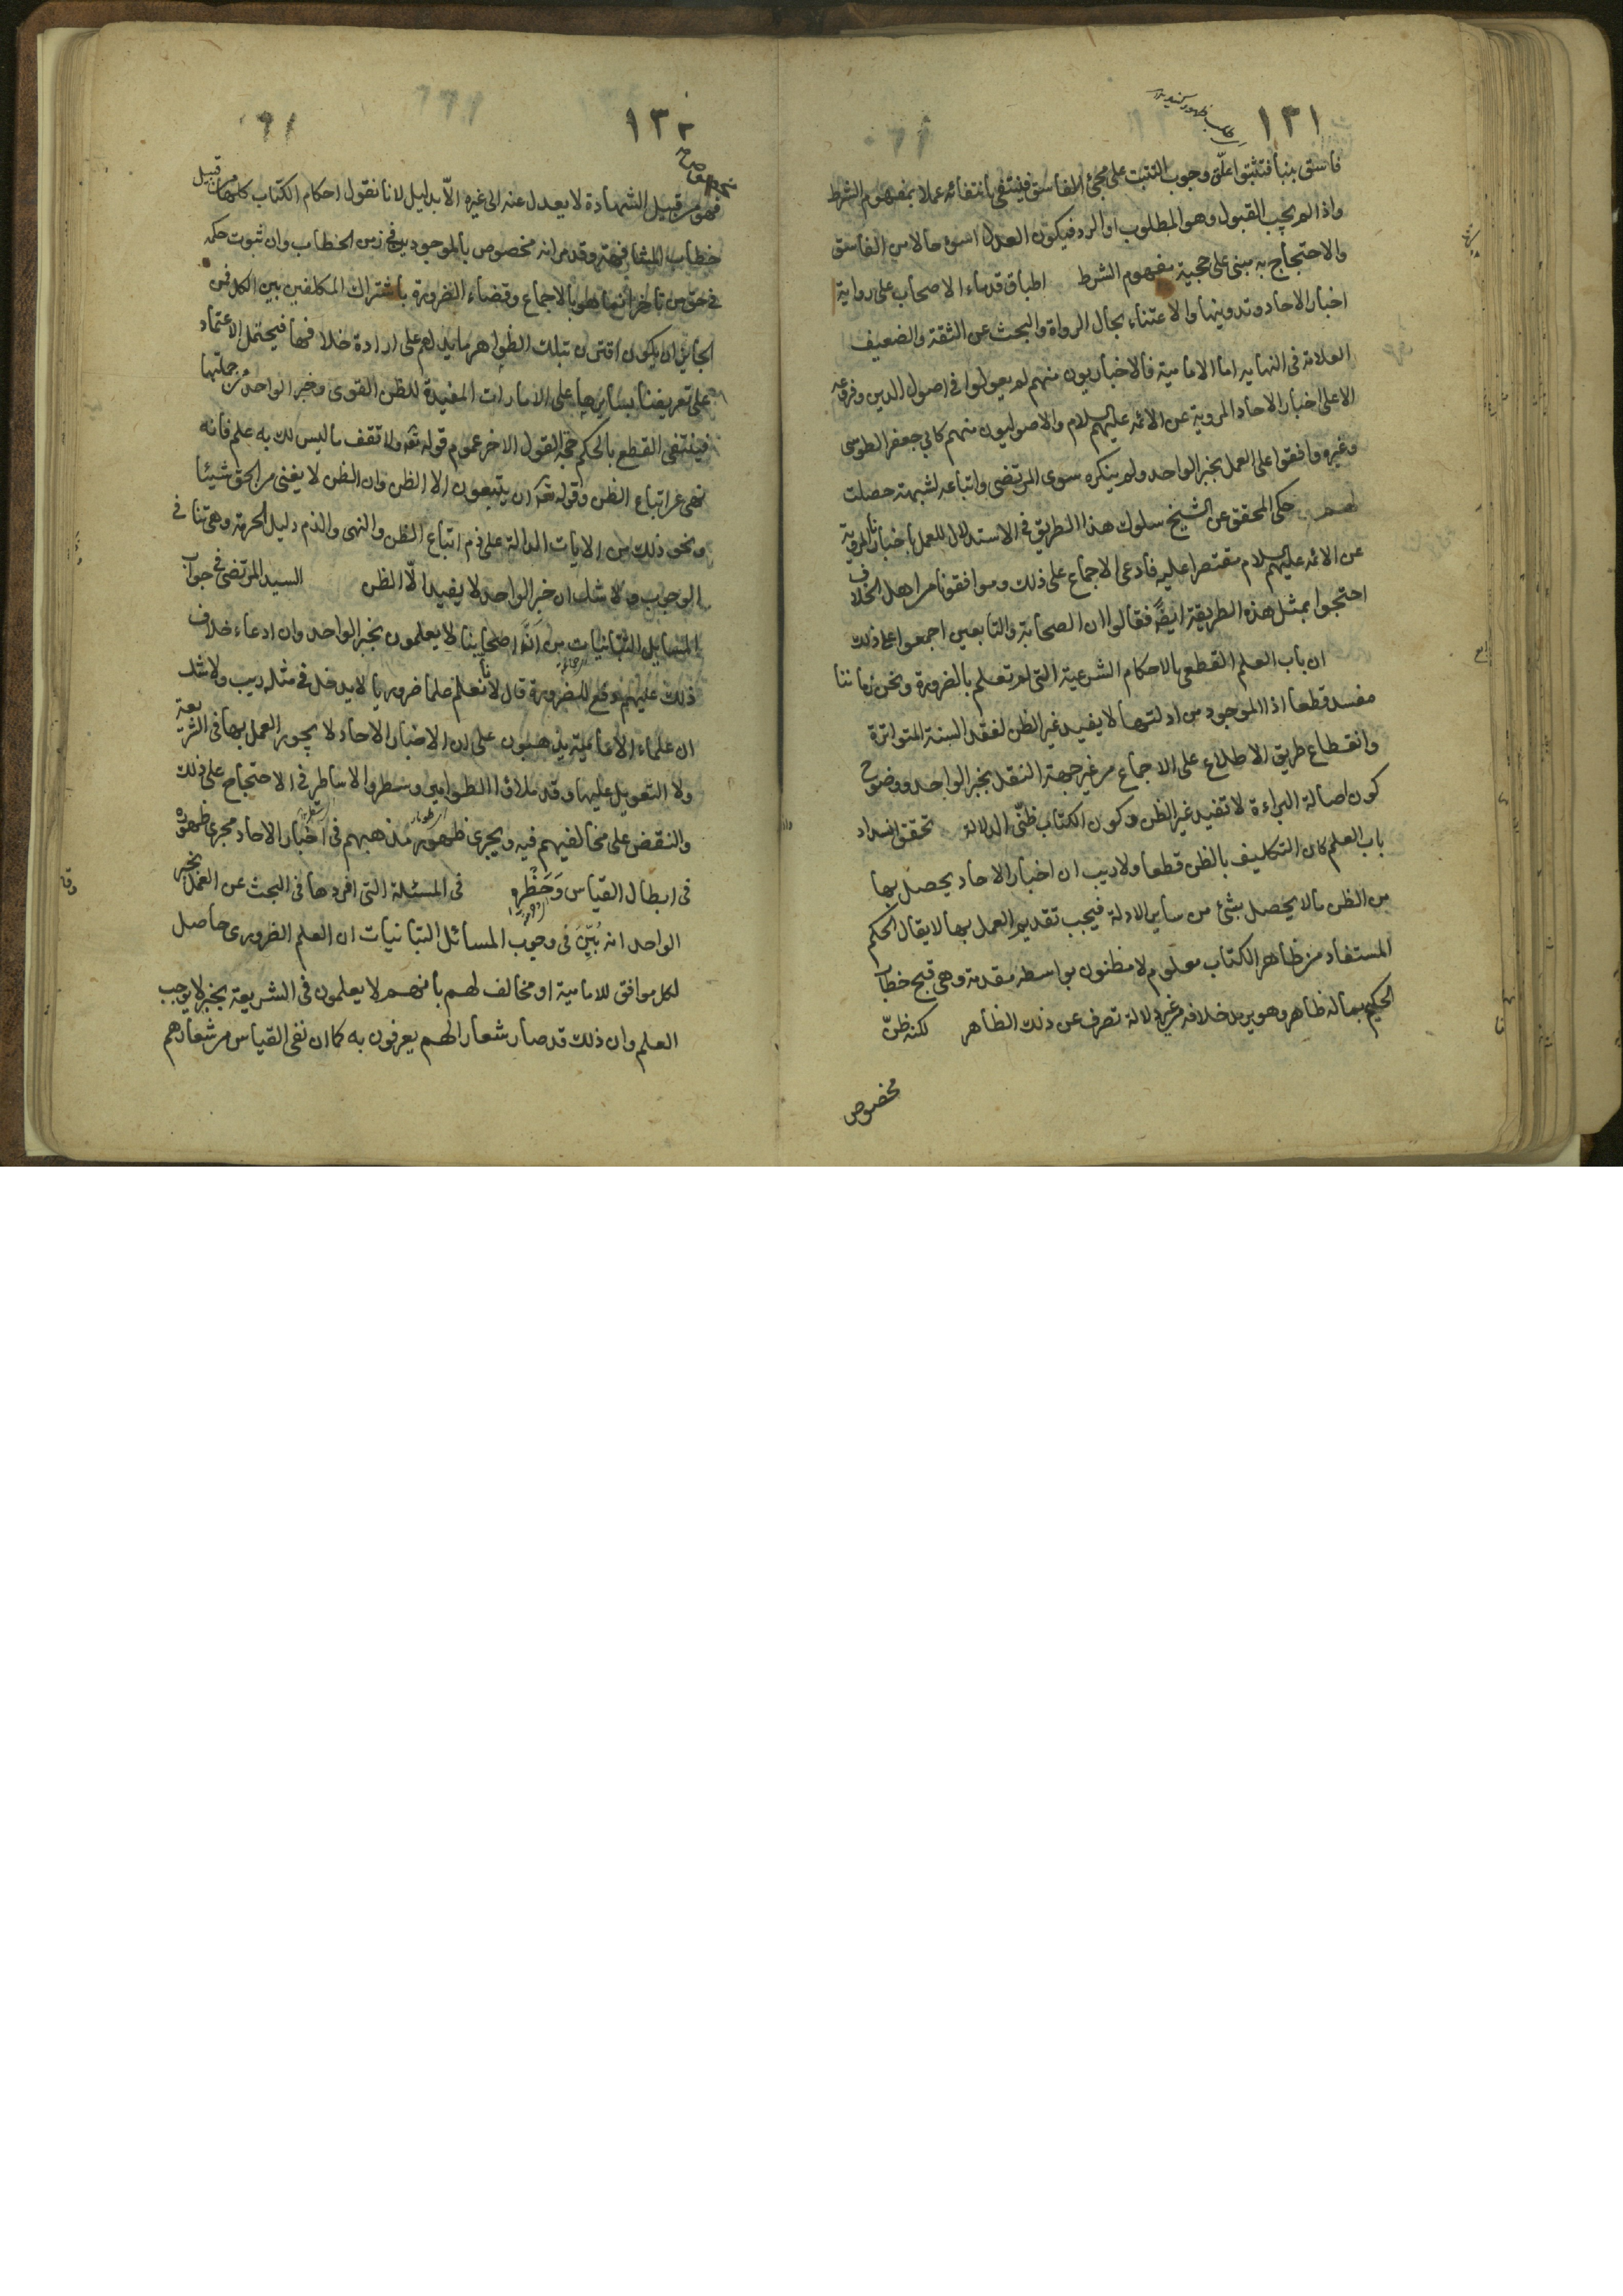 ١٣١
فاسق بنبأ فتثبتوا علّق وجوب التثبت على مجئ الفاسق فينتفي بانتفائه عملا بمفهوم الشرط
واذا لم يجب القبول وهو المطلوب او الرد فيكون العدل اسوء حالا من الفاسق
والاحتجاج به مبنى على حجية مفهوم الشرط اطباق قدماء الاصحاب على رواية
اخبار الاحاد وتدوينها والاعتناء بحال الرواة والبحث عن الثقة والضعيف
العلامة فى النهايه اما الامامية فالاخباريون منهم لم يعولوا فى اصول الدين وفروعه
الا على اخبار الاحاد المروية عن الائمه عليهم السلام والاصوليون منهم كابي جعفر الطوسى
وغيره وافقوا على العمل بخبر الواحد ولم ينكره سوى المرتضى واتباعه لشبهة حصلت
لهم حكى المحقق عن الشيخ سلوك هذا الطريق فى الاستدلال للعمل باخبارنا المروية
عن الائمه عليهم السلام مقتصرا عليه فادعى الاجماع على ذلك وموافقونا من اهل الخلاف
احتجوا بمثل هذه الطريقة ايضا فقالوا ان الصحابة والتابعين اجمعوا على ذلك
ان باب العلم القطعى بالاحكام الشرعية التى لم تعلم بالضرورة ونحن زماننا
مفسد قطعا اذ الموجود من ادلتها لا يفيد غير الظن لفقد السنة المتواترة
وانقطاع طريق الاطلاع على الاجماع من غير جهة النقل بخبر الواحد ووضوح
كون اصالة البراءة لا تفيد غير الظن وكون الكتاب ظنّى الدلالة تحقق انسداد
باب العلم كان التكليف بالظن قطعا ولا ريب ان اخبار الاحاد يحصل بها
من الظن ما لا يحصل بشئ من ساير الادلة فيجب تقديم العمل بها لا يقال الحكم
المستفاد من ظاهر الكتاب معلوم لا مظنون بواسطه مقدمة وهى قبح خطاب
الحكيم بما له ظاهر وهو يريد خلافه من غير دلالة تصرف عن ذلك الظاهر لكنه ظنّ
مخصوص
١٣٢
فهو من قبيل الشهادة لا يعدل عنه الى غيره الّا بدليل لانا نقول احكام الكتاب كلها من قبيل
خطاب المشافهة وقد مر انه مخصوص بالموجودين فى زمن الخطاب وان ثبوت حكمه
فى حق من تاخر انما هو بالاجماع وقضاء الضرورة باشتراك المكلفين بين الكل فمن
الجائز ان يكون اقترن بتلك الظواهر ما يدلهم على ارادة خلافها فيحتمل الاعتماد
على تعريفنا بسايرها على الامارات المفيدة للظن القوى وخبر الواحد من جملتها
فينتفى القطع بالحكم حجة القول الاخر عموم قوله تعه ولا تقف ما ليس لك به علم فانه
نهى عن اتباع الظن وقوله تعه ان يتبعون الا الظن وان الظن لا يغنى من الحق شيئا
ونحو ذلك من الايات الدالة على ذم اتباع الظن والنهى والذم دليل الحرمة وهى تنافى
الوجوب ولا شك ان خبر الواحد لا يفيد الّا الظن السيد المرتضى فى جواب
المسايل التبانيات من اَنَّ اصحابنا لا يعملون بخبر الواحد وان ادعاء خلاف
ذلك عليهم دفع للضرورة قال لانا نعلم علما ضروريا لا يدخل فى مثله ريب ولا شك
ان علماء الامامية يذهبون على ان الاخبار الاحاد لا يجوز العمل بها فى الشريعة
ولا التعويل عليها وقد ملأوا الطوامير وسطروا الاساطر فى الاحتجاج على ذلك
والنقض على مخالفيهم فيه ويجرى ظهور مذهبهم فى اخبار الاحاد مجرى ظهوره
فى ابطال القياس وَحَظْرِه فى المسئلة التى افردها فى البحث عن العمل بخبر
الواحد انه بُيِّنَ فى وجوب المسائل التبانيات ان العلم الضرورى حاصل
لكل موافق للامامية او مخالف لهم بانهم لا يعلمون فى الشريعة بخبر لا يوجب
العلم وان ذلك قد صار شعارا لهم يعرفون به كما ان نفى القياس من شعارهم